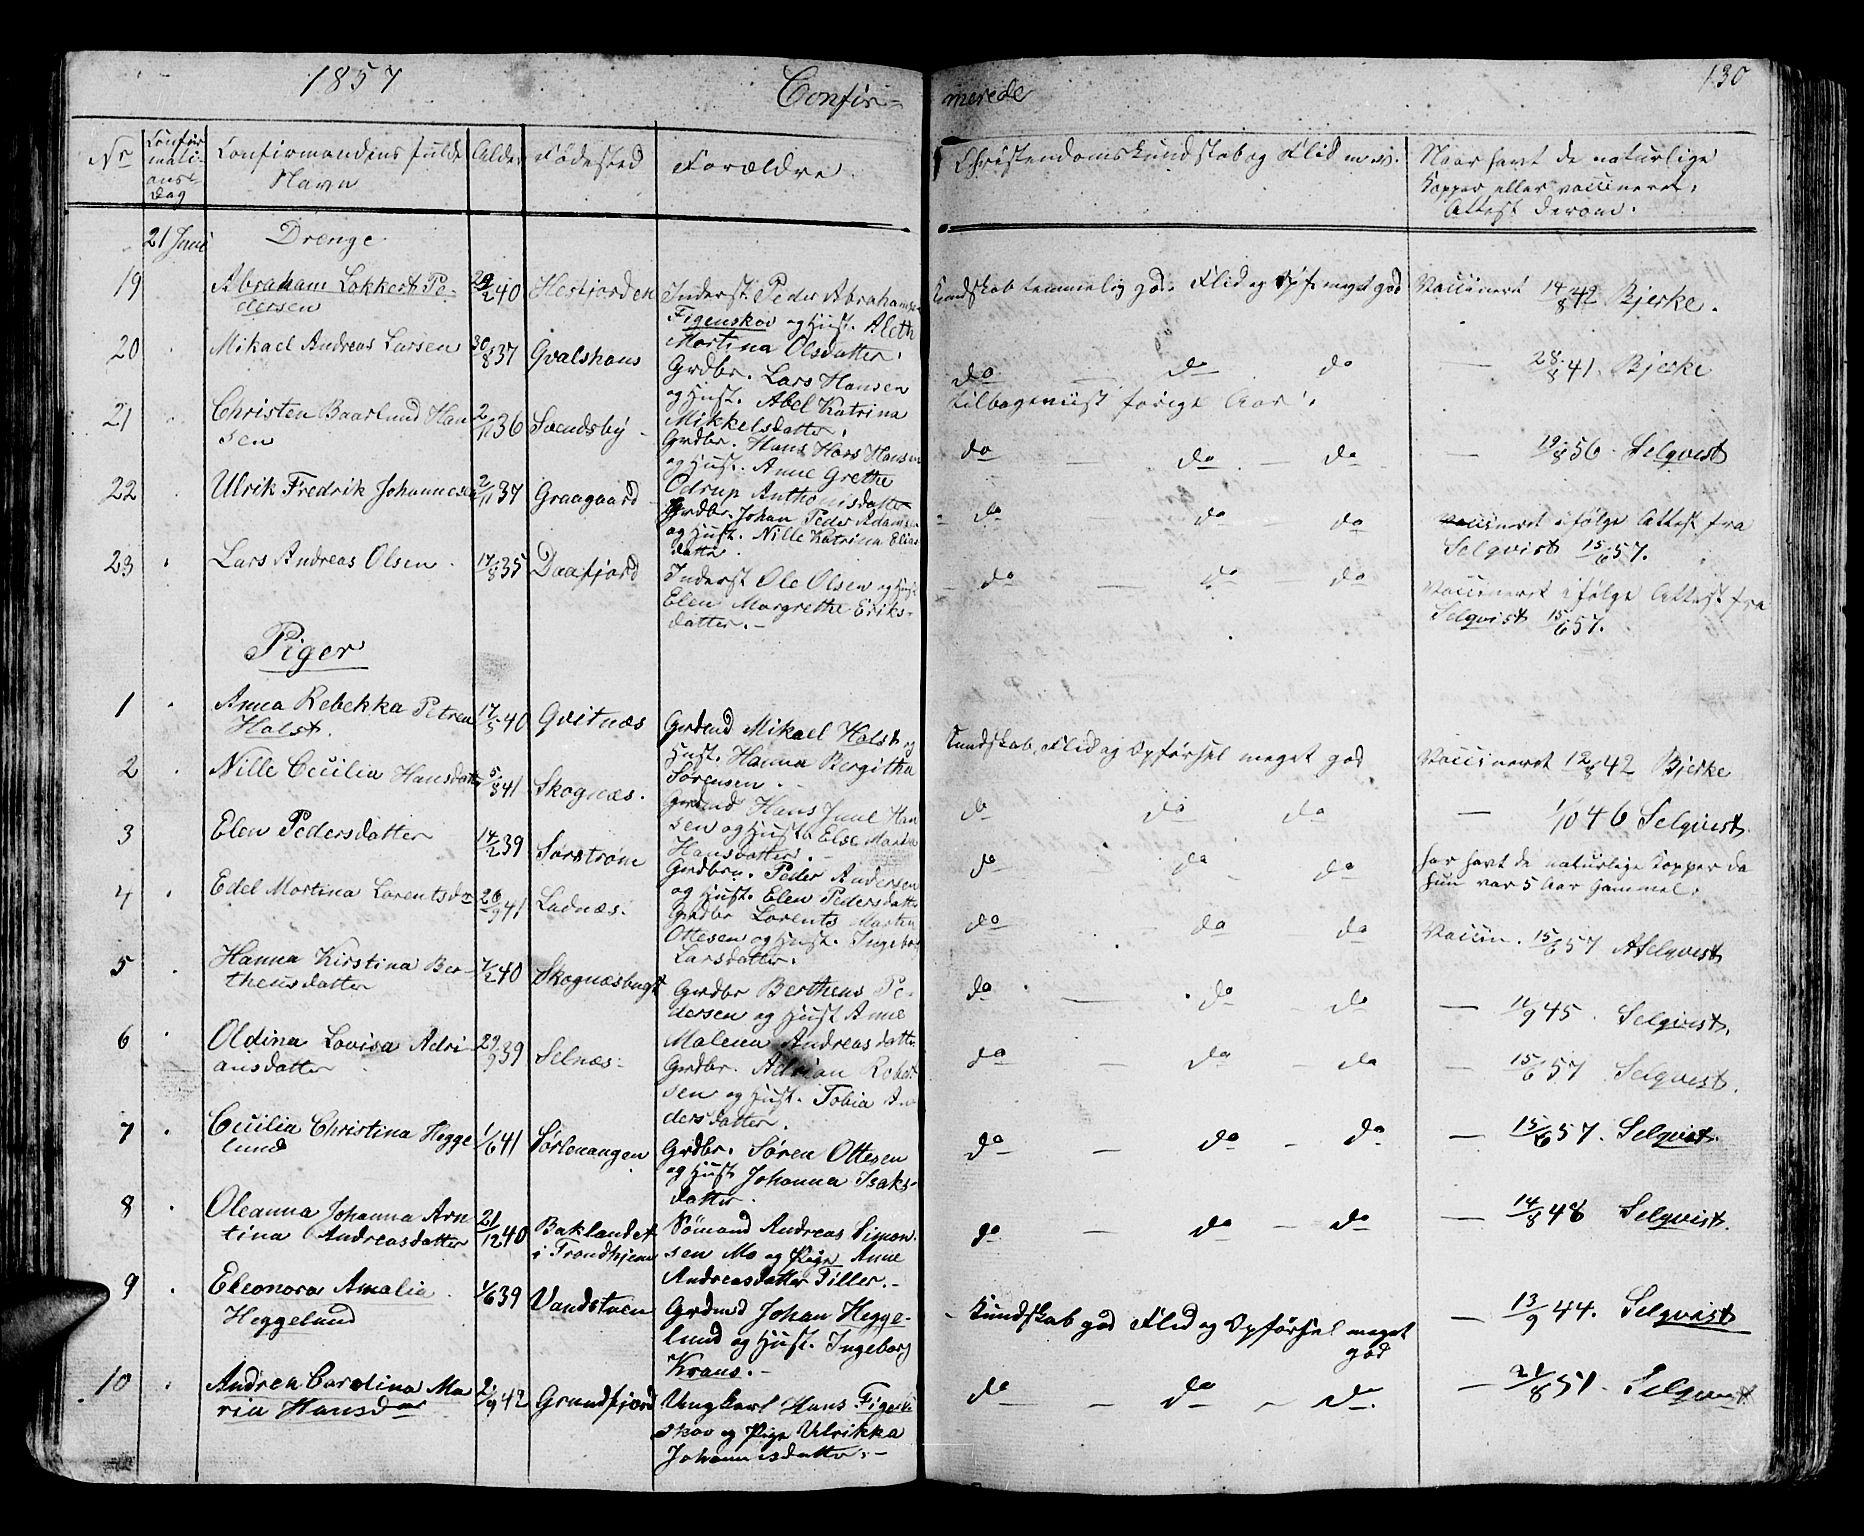 1857 Confir- merede 130
Nr Confirmationsdag Confirmandens fulde Navn Alder Fødested Forældre. Christendomskundskab og Flid m. v. Naar havt de naturlige Kopper eller vaccineret, Attest derom.
21 Juni Drenge
19 Abraham Lokkert Pedersen 29/2 40 Hesfjorden Inderst Peder Abrahamsen Figenskov og Hust. Aleth Martina Olsdatter. Kundskab temmelig god. Flid og Opf. meget god Vaccineret 14/8 42 Bjerke.
20 Mikael Andreas Larsen 30/8 37 Gvalshaus Grdbr. Lars Hansen og Hust. Abel Katrina Mikkelsdatter. do do do — 28/8 41. Bjerke
tilbageviist forige Aar.
21 Christen Baarlund Hansen 2/11 36 Svendsby Grdbr. Hans Hars Hansen og Hust. Anne Grethe Odrup Anthonisdatter do — do — do — 19/8 56. Selqvist
22 Ulrik Fredrik Johannesen 2/11 37 Graagaard Grdbr. Johan Peder Adamsen og Hust. Nille Katrina Eliasdatter do do do Vaccineret ifølge Attest fra Selqvist 15/6 57.
23 Lars Andreas Olsen 17/8 35 Daafjord Inderst Ole Olsen og Hust Elen Margrethe Eriksdatter. do — do do Vaccineret ifølge Attest fra Selqvist 15/6 57.
Piger
1 Anna Rebekka Petrea Holst. 17/5 40 Gvitnæs Grdmd Mikael Holst og Hust. Hanna Bergitha Sørensen. Kundskab, Flid og Opførsel meget god Vaccineret 12/8 42 Bjerke
2 Nille Cecilia Hansdatter 5/8 41 Skognæs. Grdmd Hans Juul Hansen og Hust. Else Marthe Hansdatter. do do do — 1/10 46 Selqvist
3 Elen Pedersdatter 14/2 39 Sørstrøm Grdbr. Peder Andersen og Hust. Elen Pedersdatter do do do har havt de naturlige Kopper da hun var 5 Aar gammel.
4 Edel Martina Lorentsdr 26/9 41 Ladnæs. Grdbr Lorents Martin Ottesen og Hust. Ingeborg Larsdatter. do do do Vaccin. 15/6 57 A Selqvist
5 Hanna Kirstina Bertheusdatter 7/2 40 Skognæsbugt Grdbr Bertheus Pedersen og Hust Anne Malena Andreasdatter. do — do — do — 11/9 45. Selqvist.
6 Oldina Lovisa Adriansdatter 29/9 39 Selnæs. Grdbr. Adrian Robertsen og Hust. Tobia Andersdatter. do — do — do — 15/6 57 Selqvist.
7 Cecilia Christina Heggelund 1/6 41 Sørlenangen Grdbr. Søren Ottesen og Hust Johanna Isaksdatter. do — do — do — 15/6 57. Selqvist.
8 Oleanna Johanna Arntina Andreasdatter 21/12 40 Baklandet i Trondhjem Sømand Andreas Simonsen Mo og Pige Anne Andreasdatter Tiller. do — do — do — 14/8 48 Selqvist.
9 Eleonora Amalia Heggelund 1/6 39 Vandstuen Grdmd Johan Heggelund og Hust. Ingeborg Kraus. Kundskab god Flid og Opførsel meget god — 13/9 44. Selqvist
10 Andrea Carolina Maria Hansdr 2/9 42 Grundfjord Ungkarl Hans Figenskov og Pige Ulrikka Johannisdatter. do — do — do. — 21/8 51. Selqvist